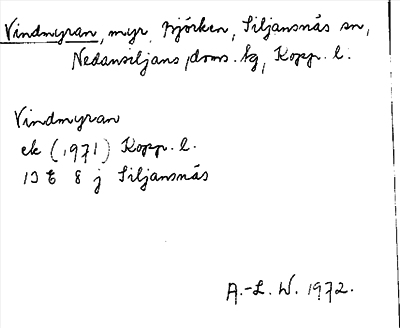 Vindmyran, myr, Björken, Siljansnäs sn,
Nedansiljans doms. bg, Kopp. l.
Vindmyran
ek (1971) Kopp. l.
13 E 8 j Siljansnäs
A.-L. W. 1972.